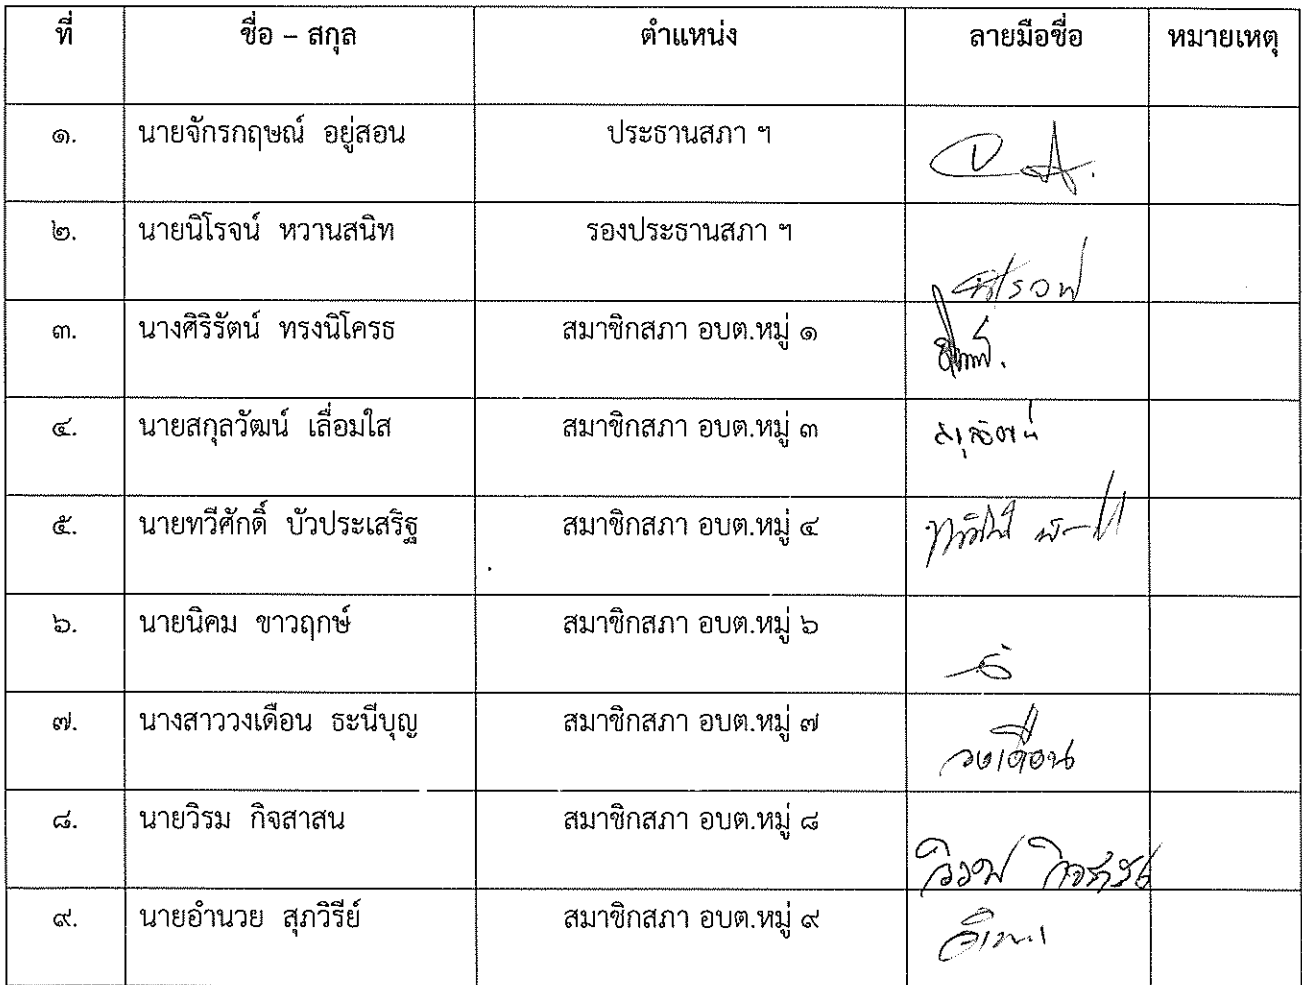 ที่ ชื่อ – สกุล ตำแหน่ง ลายมือชื่อ หมายเหตุ
๑. นายจักรกฤษณ์ อยู่สอน ประธานสภา ฯ
๒. นายนิโรจน์ หวานสนิท รองประธานสภา ฯ
๓. นางศิริรัตน์ ทรงนิโครธ สมาชิกสภา อบต.หมู่ ๑
๔. นายสกุลวัฒน์ เลื่อมใส สมาชิกสภา อบต.หมู่ ๓ สกุลวัฒน์
๕. นายทวีศักดิ์ บัวประเสริฐ สมาชิกสภา อบต.หมู่ ๔
๖. นายนิคม ขาวฤกษ์ สมาชิกสภา อบต.หมู่ ๖
๗. นางสาววงเดือน ธะนีบุญ สมาชิกสภา อบต.หมู่ ๗ วงเดือน
๘. นายวิรม กิจสาสน สมาชิกสภา อบต.หมู่ ๘ วิรม กิจสาสน
๙. นายอำนวย สุภวิรีย์ สมาชิกสภา อบต.หมู่ ๙